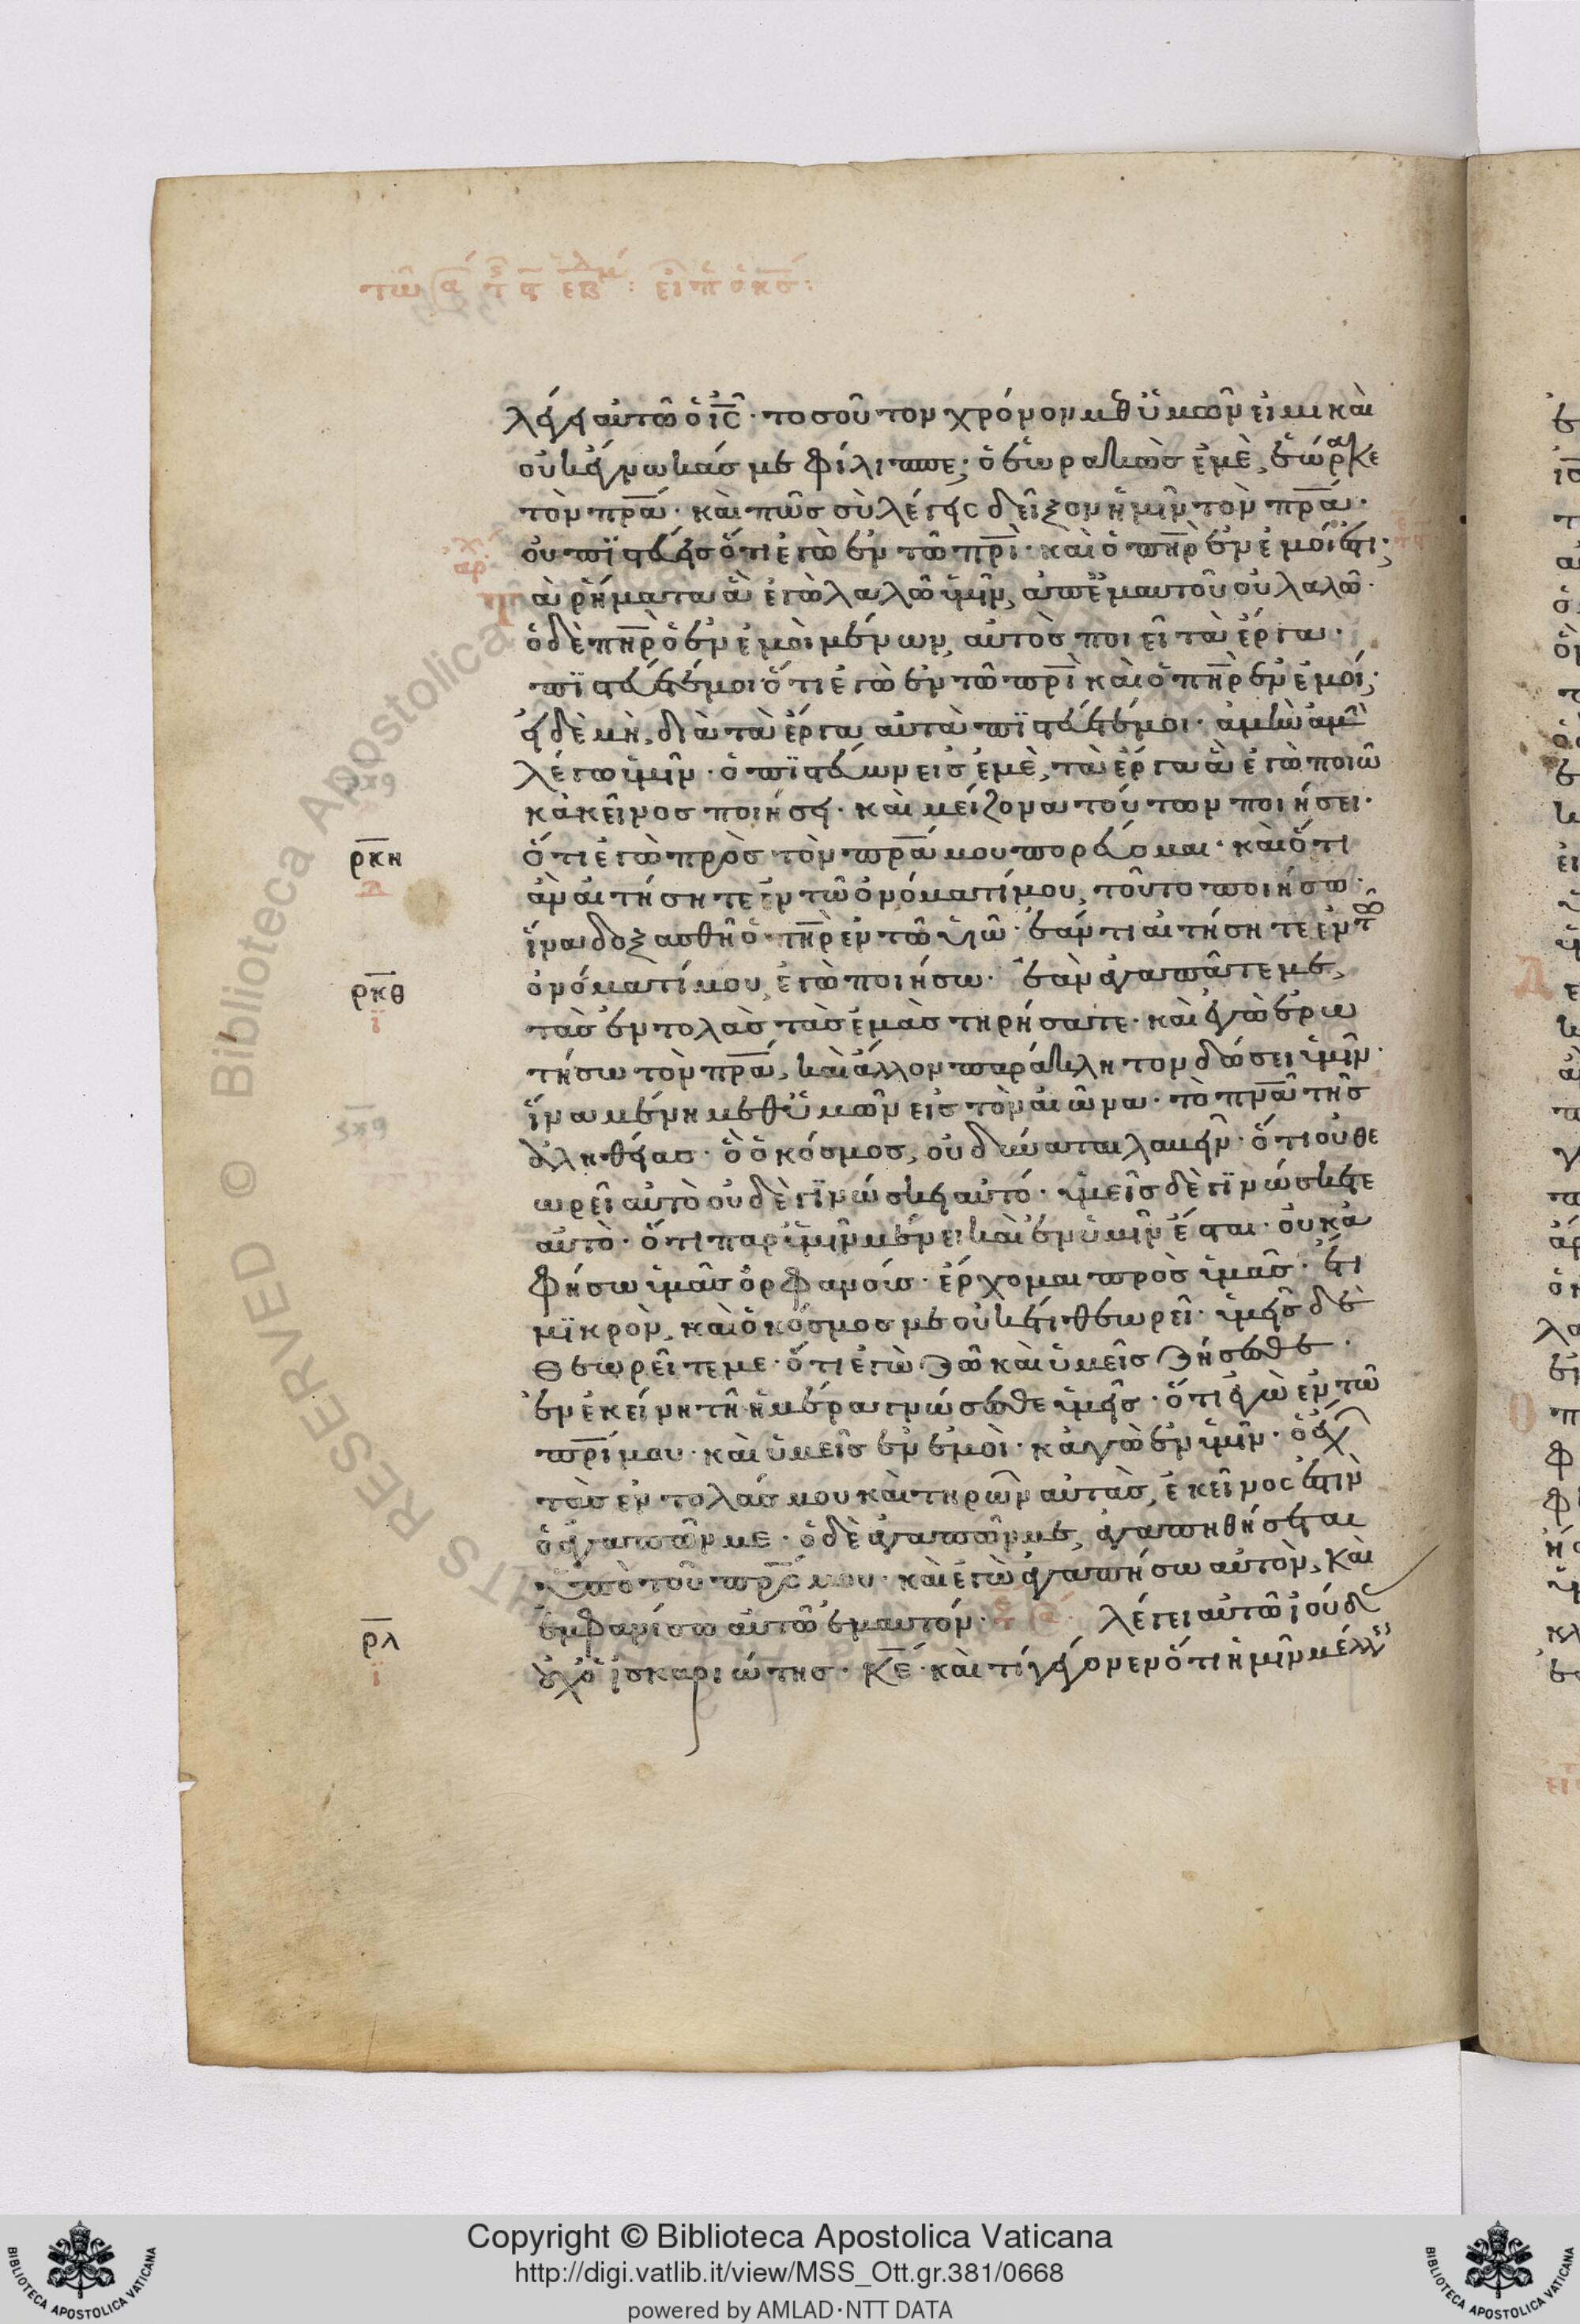 λέγει αὐτῶ ὁ ι̅ς̅· τοσοῦτον χρόνον μεθ' ὑμῶν εἰμι καὶ
οὐκ ἔγνωκάς με φίλιππε; ὁ ἑωρακὼς ἐμὲ, ἑώρακε
τὸν π̅ρ̅α̅· καὶ πῶς σὺ λέγεις δεῖξον ἡμῖν τὸν π̅ρ̅α̅·
οὐ πϊστεύεις ὅτι ἐγὼ ἐν τῶ π̅ρ̅ι̅· καὶ ὁ π̅η̅ρ̅ ἐν ἐμοί ἐστι;
Τὰ ῥήματα ἃ ἐγὼ λαλῶ ὑμῖν, ἀπ' ἐμαυτοῦ οὐ λαλῶ·
ὁ δὲ π̅η̅ρ̅ ὁ ἐν ἐμοὶ μένων, αὐτὸς ποιεῖ τὰ ἔργα·
πϊστεύετέ μοι ὅτι ἐγὼ ἐν τῶ π̅ρ̅ι̅ καὶ ὁ π̅η̅ρ̅ ἐν ἐμοί;
εἰ δὲ μὴ, διὰ τὰ ἔργα αὐτὰ πϊστεύετέ μοι· ἀμὴν ἀμὴν
λέγω ὑμῖν· ὁ πϊστεύων εἰς ἐμὲ, τὰ ἔργα ἃ ἐγὼ ποιῶ
κἀκεῖνος ποιήσει· καὶ μείζονα τούτων ποιήσει·
ρ̅κ̅η̅ ὅτι ἐγὼ πρὸς τὸν π̅ρ̅α̅ μου πορεύομαι· καὶ ὅτι
ἂν αἰτήσητε ἐν τῶ ὀνόματί μου, τοῦτο ποιήσω·
ἵνα δοξασθῆ ὁ π̅η̅ρ̅ ἐν τῶ υἱῶ· ἐάν τι αἰτήσητε ἐν τῶ
ρ̅κ̅θ̅ ὀνόματί μου, ἐγὼ ποιήσω· ἐὰν ἀγαπᾶτε με,
ϊ τὰς ἐντολὰς τὰς ἐμὰς τηρήσατε· καὶ ἐγὼ ἐρω
τήσω τὸν π̅ρ̅α̅, καὶ ἄλλον παράκλητον δώσει ὑμῖν·
ἵνα μένη μεθ' ὑμῶν εἰς τὸν αἰῶνα· τὸ π̅ν̅α̅ τῆς
ἀληθείας· ὃ ὁ κόσμος, οὐ δύναται λαβεῖν· ὅτι οὐ θε
ωρεῖ αὐτὸ οὐδὲ γϊνώσκει αὐτό· ὑμεῖς δὲ γϊνώσκετε
αὐτὸ· ὅτι παρ' ὑμῖν μένει καὶ ἐν ὑμῖν ἔσται· οὐκ ἀ
φήσω ὑμᾶς ὀρφανούς· ἔρχομαι πρὸς ὑμᾶς· ἔτι
μϊκρὸν, καὶ ὁ κόσμος με οὐκ ἔτι θεωρεῖ· ὑμεῖς δὲ
θεωρεῖτε με· ὅτι ἐγὼ ζῶ καὶ ὑμεῖς ζήσεσθε·
ἐν ἐκείνη τῆ ἡμέρα γνώσεσθε ὑμεῖς· ὅτι ἐγὼ ἐν τῶ
π̅ρ̅ι̅ μου· καὶ ὑμεῖς ἐν ἐμοὶ· κἀγὼ ἐν ὑμῖν· ὁ ἔχων
τὰς ἐντολάς μου καὶ τηρῶν αὐτὰς, ἐκεῖνος ἐστιν
ὁ ἀγαπῶν με· ὁ δὲ ἀγαπῶν με, ἀγαπηθήσεται
ὑπὸ τοῦ π̅ρ̅ς̅ μου· καὶ ἐγὼ ἀγαπήσω αὐτὸν, καὶ
ρ̅λ̅ ἐμφανίσω αὐτῶ ἐμαυτόν· λέγει αὐτῶ ἰούδας
ϊ οὐχ ὁ ἰσκαριώτης· κ̅ε̅· καὶ τί γέγονεν ὅτι ἡμῖν μέλλεις
Copyright © Biblioteca Apostolica Vaticana
http://digi.vatlib.it/view/MSS_Ott.gr.381/0668
powered by AMLAD·NTT DATA